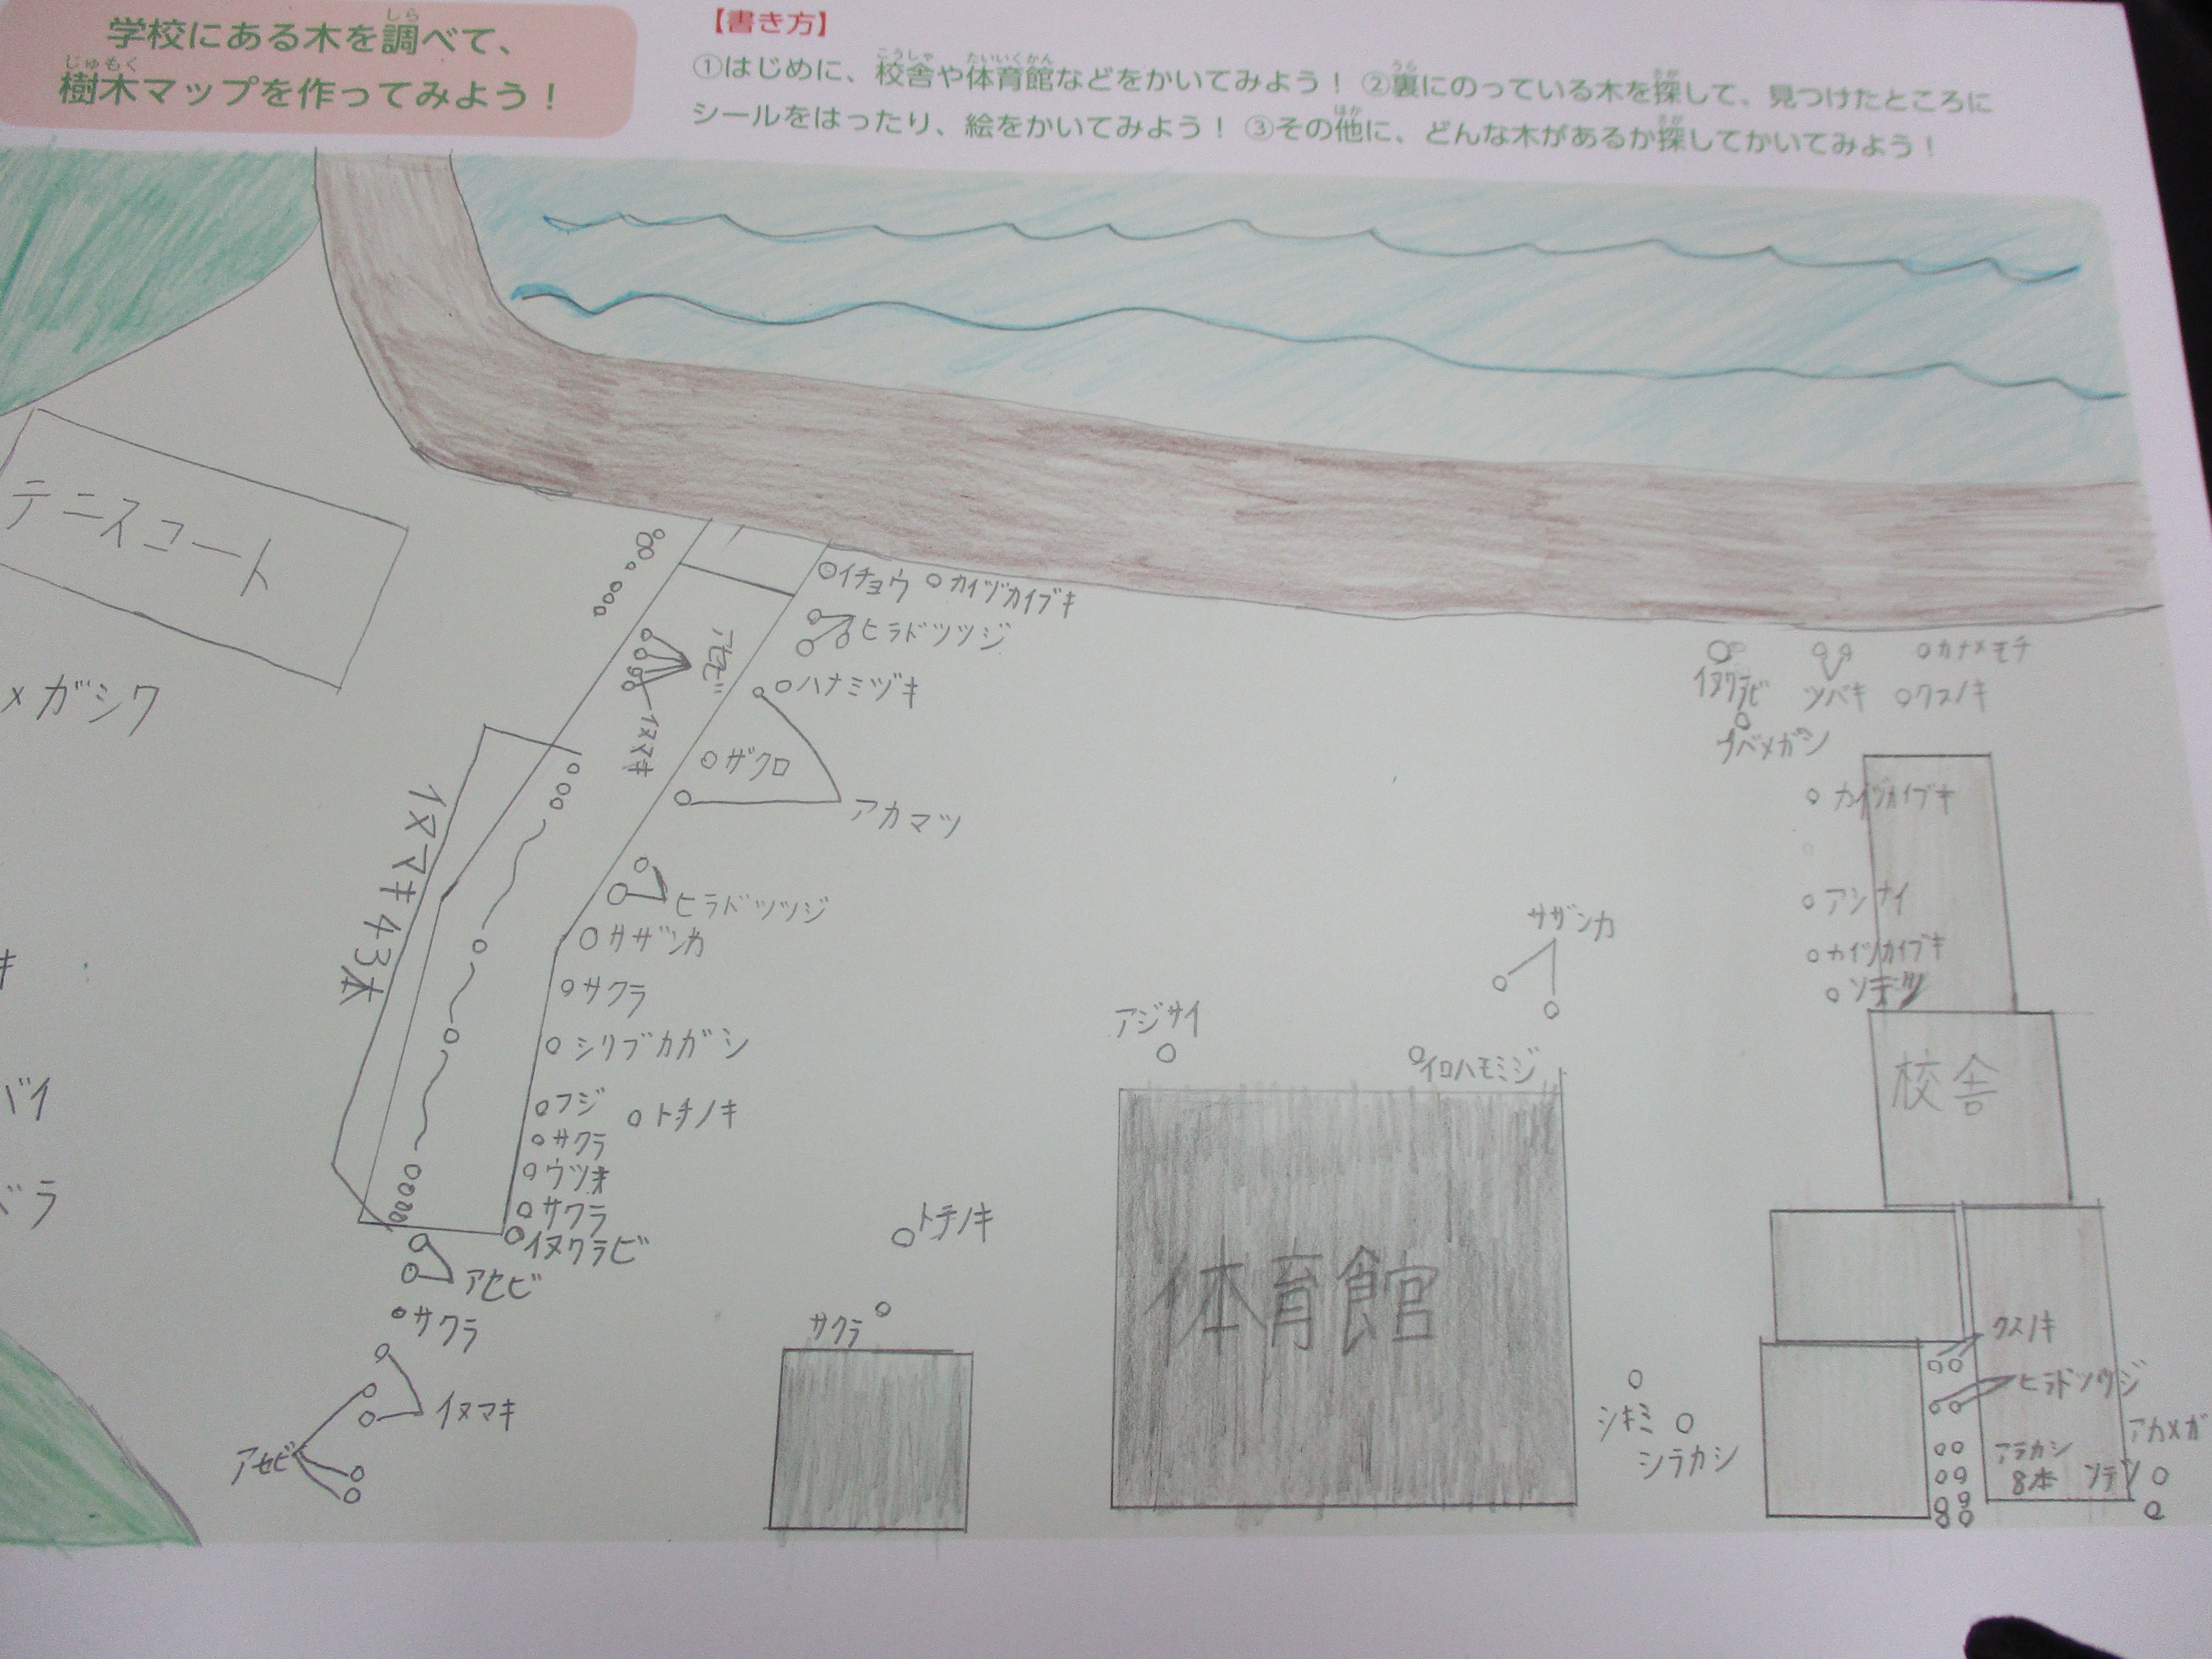 学校にある木を調べて、
樹木マップを作ってみよう！
【書き方】
①はじめに、校舎や体育館などをかいてみよう！ ②裏にのっている木を探して、見つけたところに
シールをはったり、絵をかいてみよう！ ③その他に、どんな木があるか探してかいてみよう！
テニスコート
メガシワ
イチョウ
カイヅカイブキ
ヒラドツツジ
アセビ
ハナミヅキ
イヌマキ
ザクロ
アカマツ
イヌマキ43本
ヒラドツツジ
サザンカ
サクラ
シリブカガシ
フジ
トチノキ
サクラ
ウツギ
サクラ
イヌクラビ
アセビ
サクラ
イヌマキ
アセビ
トチノキ
サクラ
アジサイ
サザンカ
イロハモミジ
体育館
シキミ
シラカシ
イヌクラビ
ツバキ
カナメモチ
クスノキ
カイヅカイブキ
カイヅカイブキ
ソテツ
校舎
クスノキ
アラカシ
8本
ソテツ
アカメガ
バイ
ラ
キ